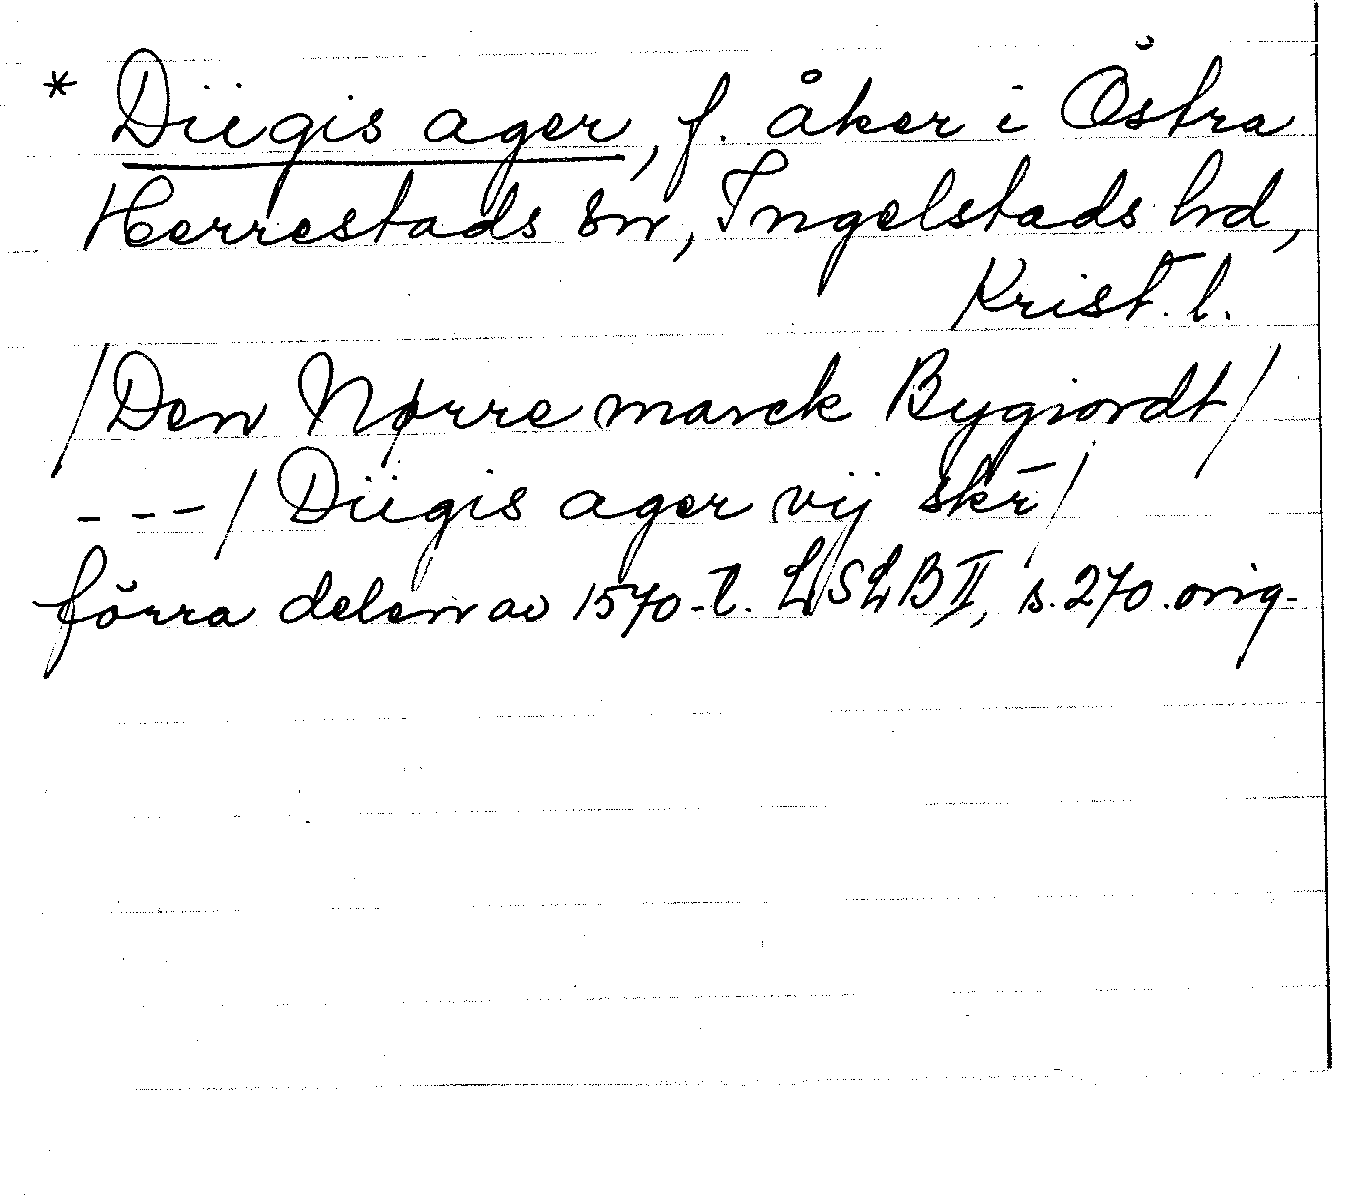 * Düegis ager, f. åker i Östra
Herrestads sn, Ingelstads hd,
Krist. l.
/Den Nørre marck Bygiordt/
---/ Düegis ager vij skr̄/
förra delen av 1570-t. LSLB II, s. 270. orig-